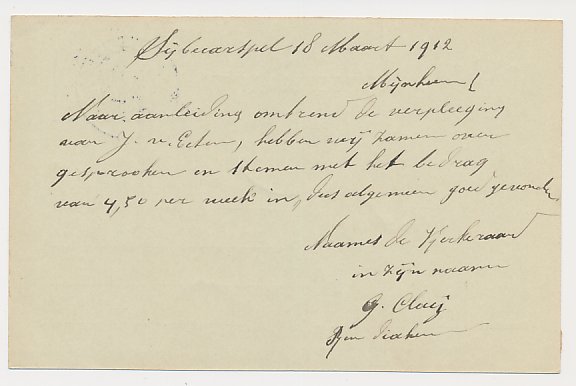 Sijbecarspel 18 Maart 1912
Mijnheer
Naar aanleiding omtrend de verpleeging
van J. v. Eeten, hebben wij zamen over
gesprooken en stemen met het bedrag
van 4,50 per week in, dus algemeen goed gevonden,
Naames de Kerkeraad
in zijn naam
G. Claij
diaken